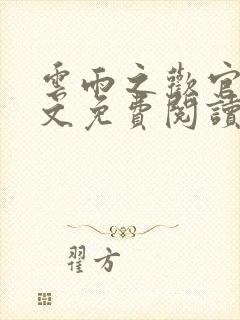 雲雨之歡官
文免費閱讀
翟方